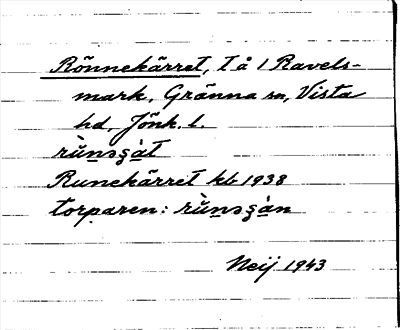 Rönnekärret, t å 1 Ravels-
mark, Gränna sn, Vista
hd, Jönk. l.
Runekärret kb 1938
torparen:
Neij 1943